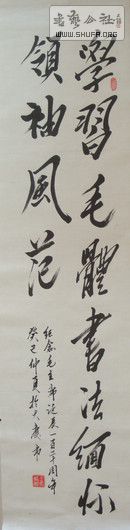 WWW.SHUFA.ORG
學習毛體書法緬懷
領袖風范
紀念毛主席誕辰一百二十周年
癸巳仲夏於大慶市